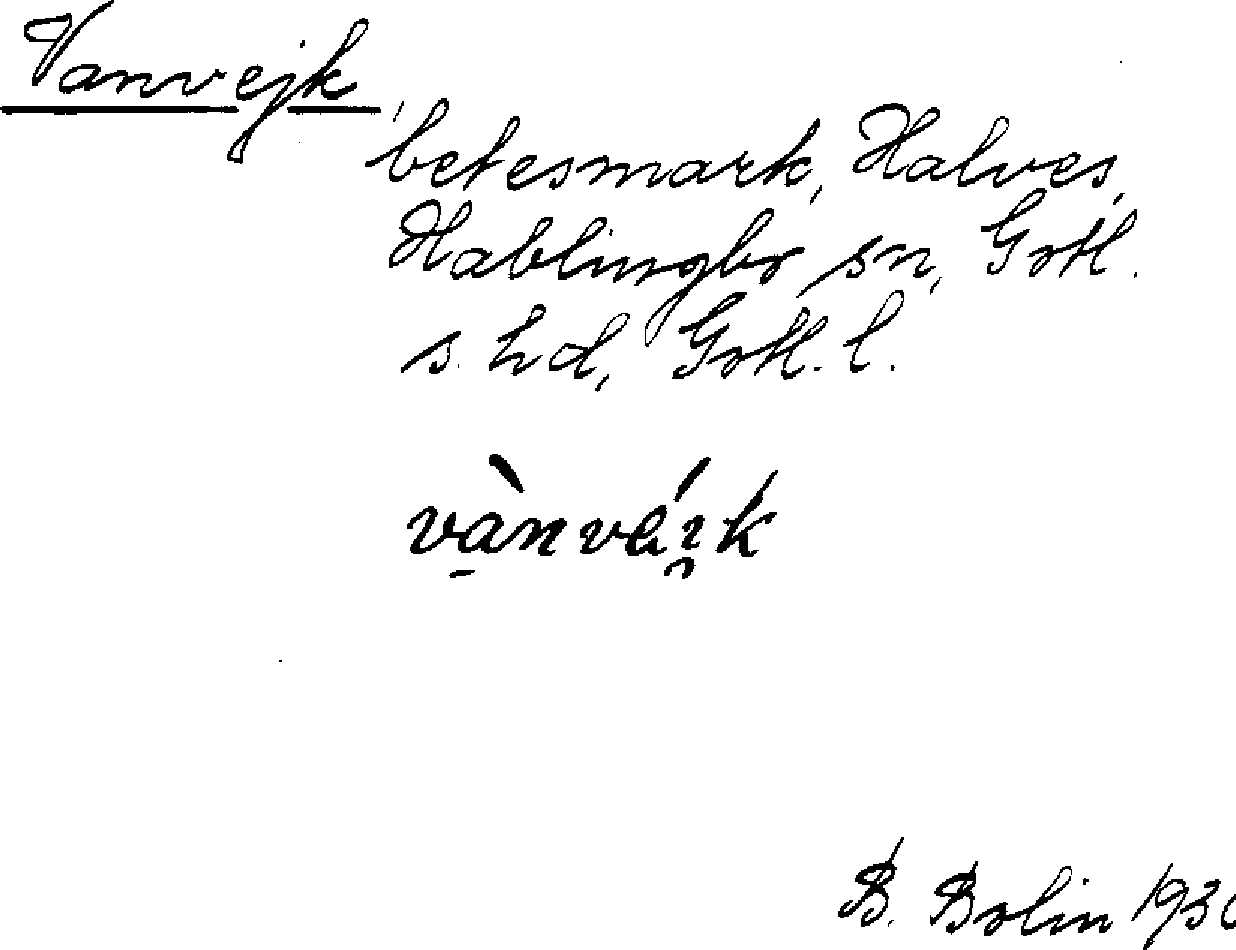 Vanvejk,
betesmark, Halves,
Hablingbo sn, Gotl.
s. hd, Gotl. l.
B. Bolin